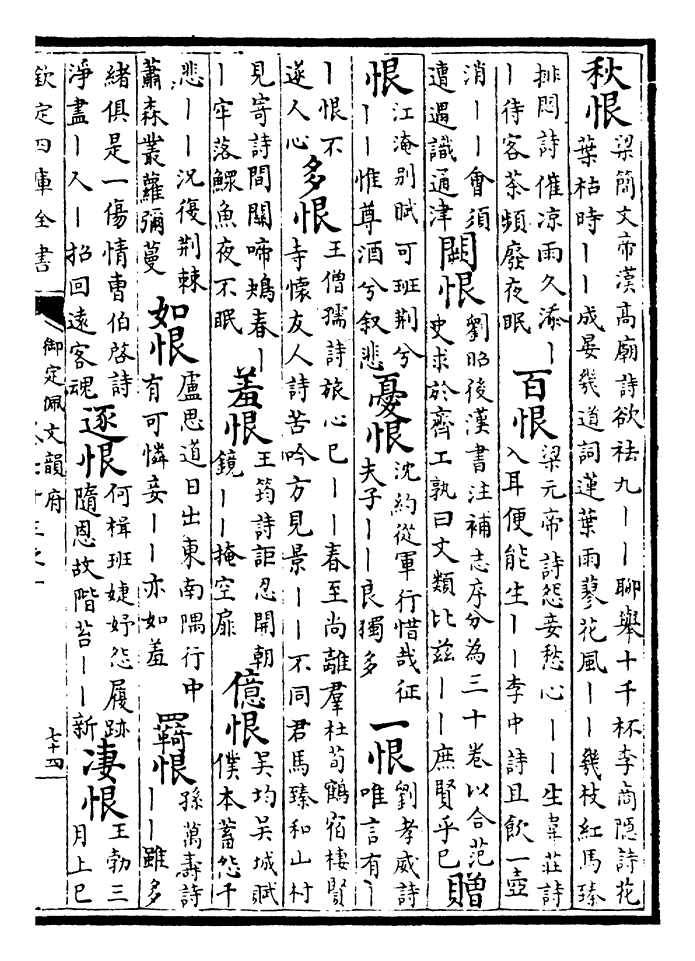 秋恨梁簡文帝漢高廟詩欲祛九丨丨聊舉十千杯李商隱詩花
葉枯時丨丨成晏幾道詞蓮葉雨蓼花風丨丨幾枝紅馬臻
排悶詩催凉雨久添丨
丨待客茶頻廢夜眠
百恨梁元帝詩怨妾愁心丨丨生韋莊詩
入耳便能生丨丨李中詩且飲一壺
消丨丨會須
遭遇識通津
闕恨劉昭後漢書注補志序分為三十卷以合范
史求於齊工孰曰文類比兹丨丨庶賢乎已
贈恨江淹别賦可班荆兮
丨丨惟尊酒兮叙悲
憂恨沈約從軍行惜哉征
夫子丨丨良獨多
一恨劉孝威詩
唯言有丨
丨恨不
遂人心
多恨王僧孺詩旅心已丨丨春至尚離羣杜荀鶴宿棲賢
寺懷友人詩苦吟方見景丨丨不同君馬臻和山村
見寄詩間關啼鴂春丨
丨牢落鰥魚夜不眠
羞恨王筠詩詎忍開朝
鏡丨丨掩空扉
億恨吴均吴城賦
僕本蓄怨千
悲丨丨況復荆棘
蕭森叢蘿彌蔓
如恨盧思道日出東南隅行中
有可憐妾丨丨亦如羞
羇恨孫萬壽詩
丨丨雖多
緒俱是一傷情曹伯啓詩
淨盡丨人丨招回遠客魂
逐恨何楫班婕妤怨履跡
隨恩故階苔丨丨新
凄恨王勃三
月上巳
欽定四庫全書
御定佩文韻府
七十四